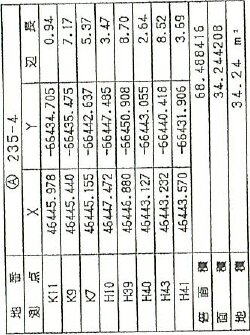 地番 Ⓐ 235-4
測点 X Y 辺長
K11 46445.978 -66434.705 0.94
K9 46445.440 -66435.475 7.17
K7 46445.155 -66442.637 5.37
H10 46447.472 -66447.485 3.47
H39 46446.880 -66450.908 8.70
H40 46443.127 -66443.055 2.64
H43 46443.232 -66440.418 8.52
H41 46443.570 -66431.906 3.69
倍面積 68.488416
面積 34.244208
地積 34.24 m²